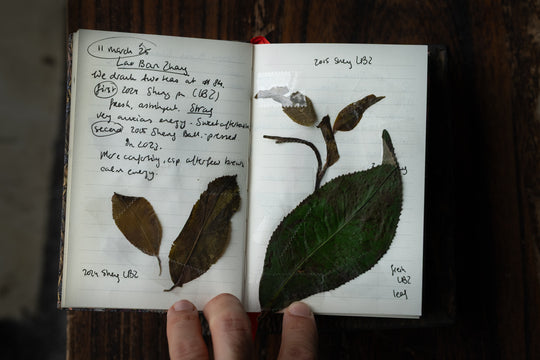 11 march 25
Lao Ban Zhang
We drank two teas at
first 2024 Sheng pu (LBZ)
fresh, astringent. Strong
very anxious energy. Sweet aftertaste
second 2015 Sheng Ball - pressed
in 2023.
More comforting, esp after few brews
calm energy.
2024 Sheng LBZ
2015 Sheng LBZ
fresh
LBZ
leaf